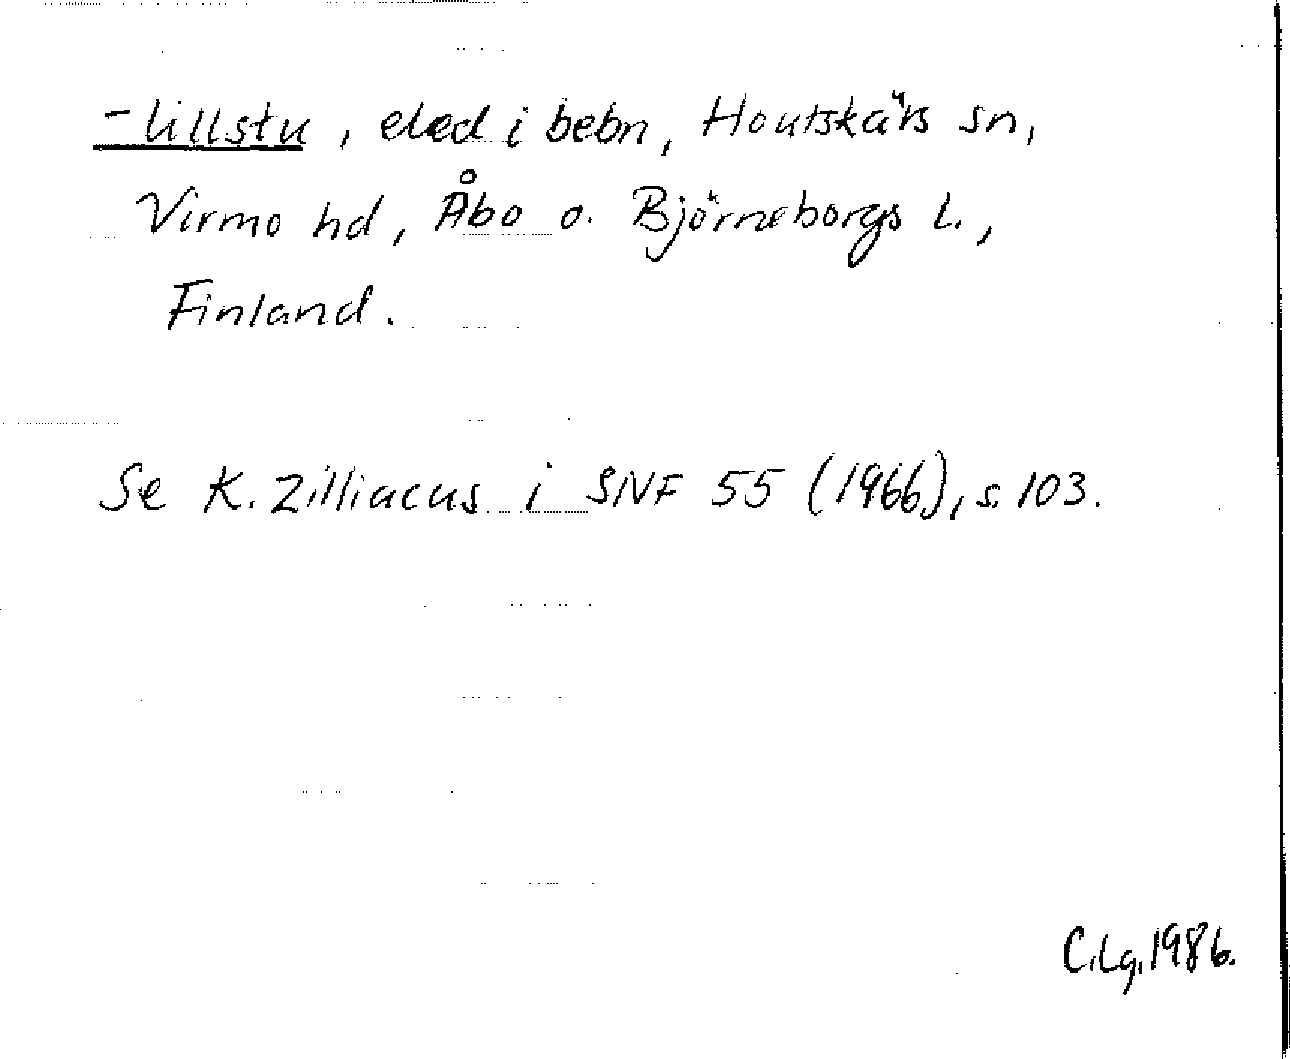 -lillstu, eled i bebn, Houtskärs sn,
Virmo hd, Åbo o. Björneborgs L.,
Finland.
Se K. Zilliacus i SNF 55 (1966), s. 103.
C.Lg. 1986.